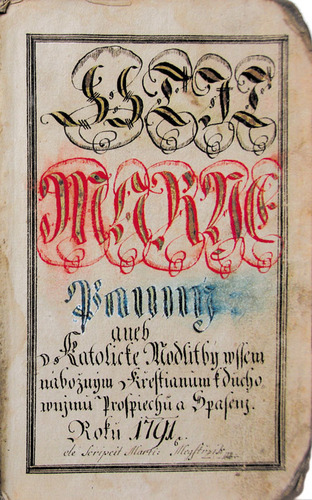 SSTIT
MARYE
Panny
aneb
Katolicke Modlitby wssem
nábožnym Křestianum k ducho
wnjmu Prospiechu a Spasenj.
Roku 1791.
Scripsit Martin